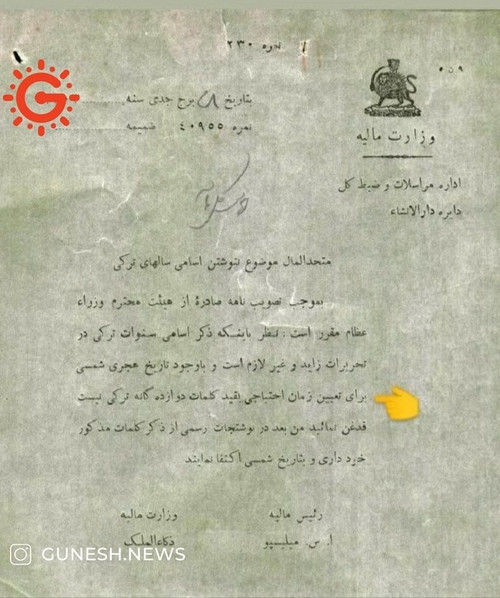 نمره ۲۳۰
۵۵۹
وزارت مالیه
اداره مراسلات و ضبط کل
دایره دارالانشاء
بتاریخ ۸ برج جدی سنه
نمره ۴۰۹۵۵ ضمیمه
متحدالمال موضوع ننوشتن اسامی سالهای ترکی
بموجب تصویب نامه صادرهٔ از هیئت محترم وزراء
عظام مقرر است: نظر باینکه ذکر اسامی سنوات ترکی در
تحریرات زاید و غیر لازم است و باوجود تاریخ هجری شمسی
برای تعیین زمان احتیاجی بقید کلمات دوازده گانه ترکی نیست
قدغن نمائید من بعد در نوشتجات رسمی از ذکر کلمات مذکور
خود داری و بتاریخ شمسی اکتفا نمایند
رئیس مالیه
وزارت مالیه
ا. س. میلیسپو
ذکاءالملک
G
GUNESH.NEWS